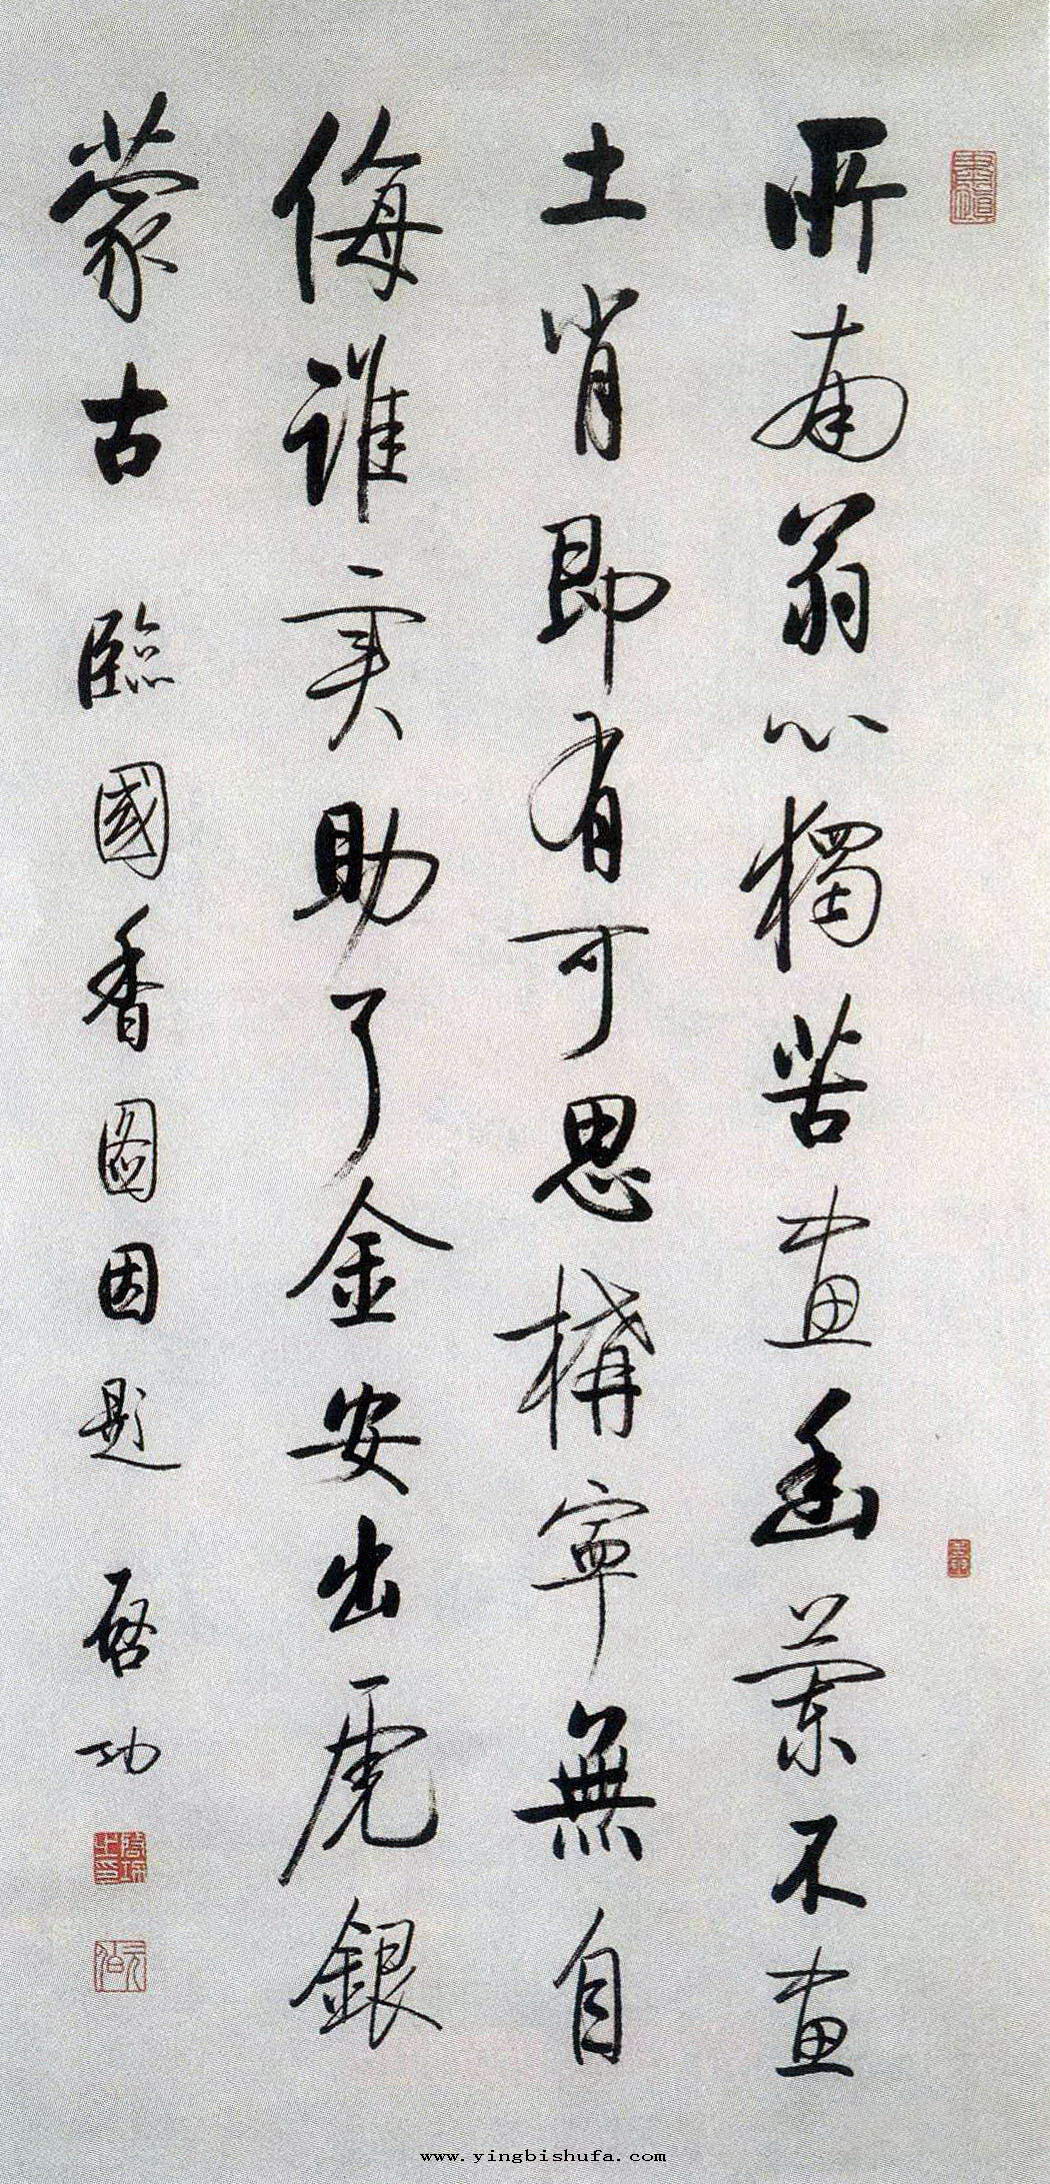 所南翁心獨苦畫幽蘭不畫
土肖即有可思構寧無自
侮誰実助了金安出虎銀
蒙古 臨國香圖因題 啓功
www.yingbishufa.com